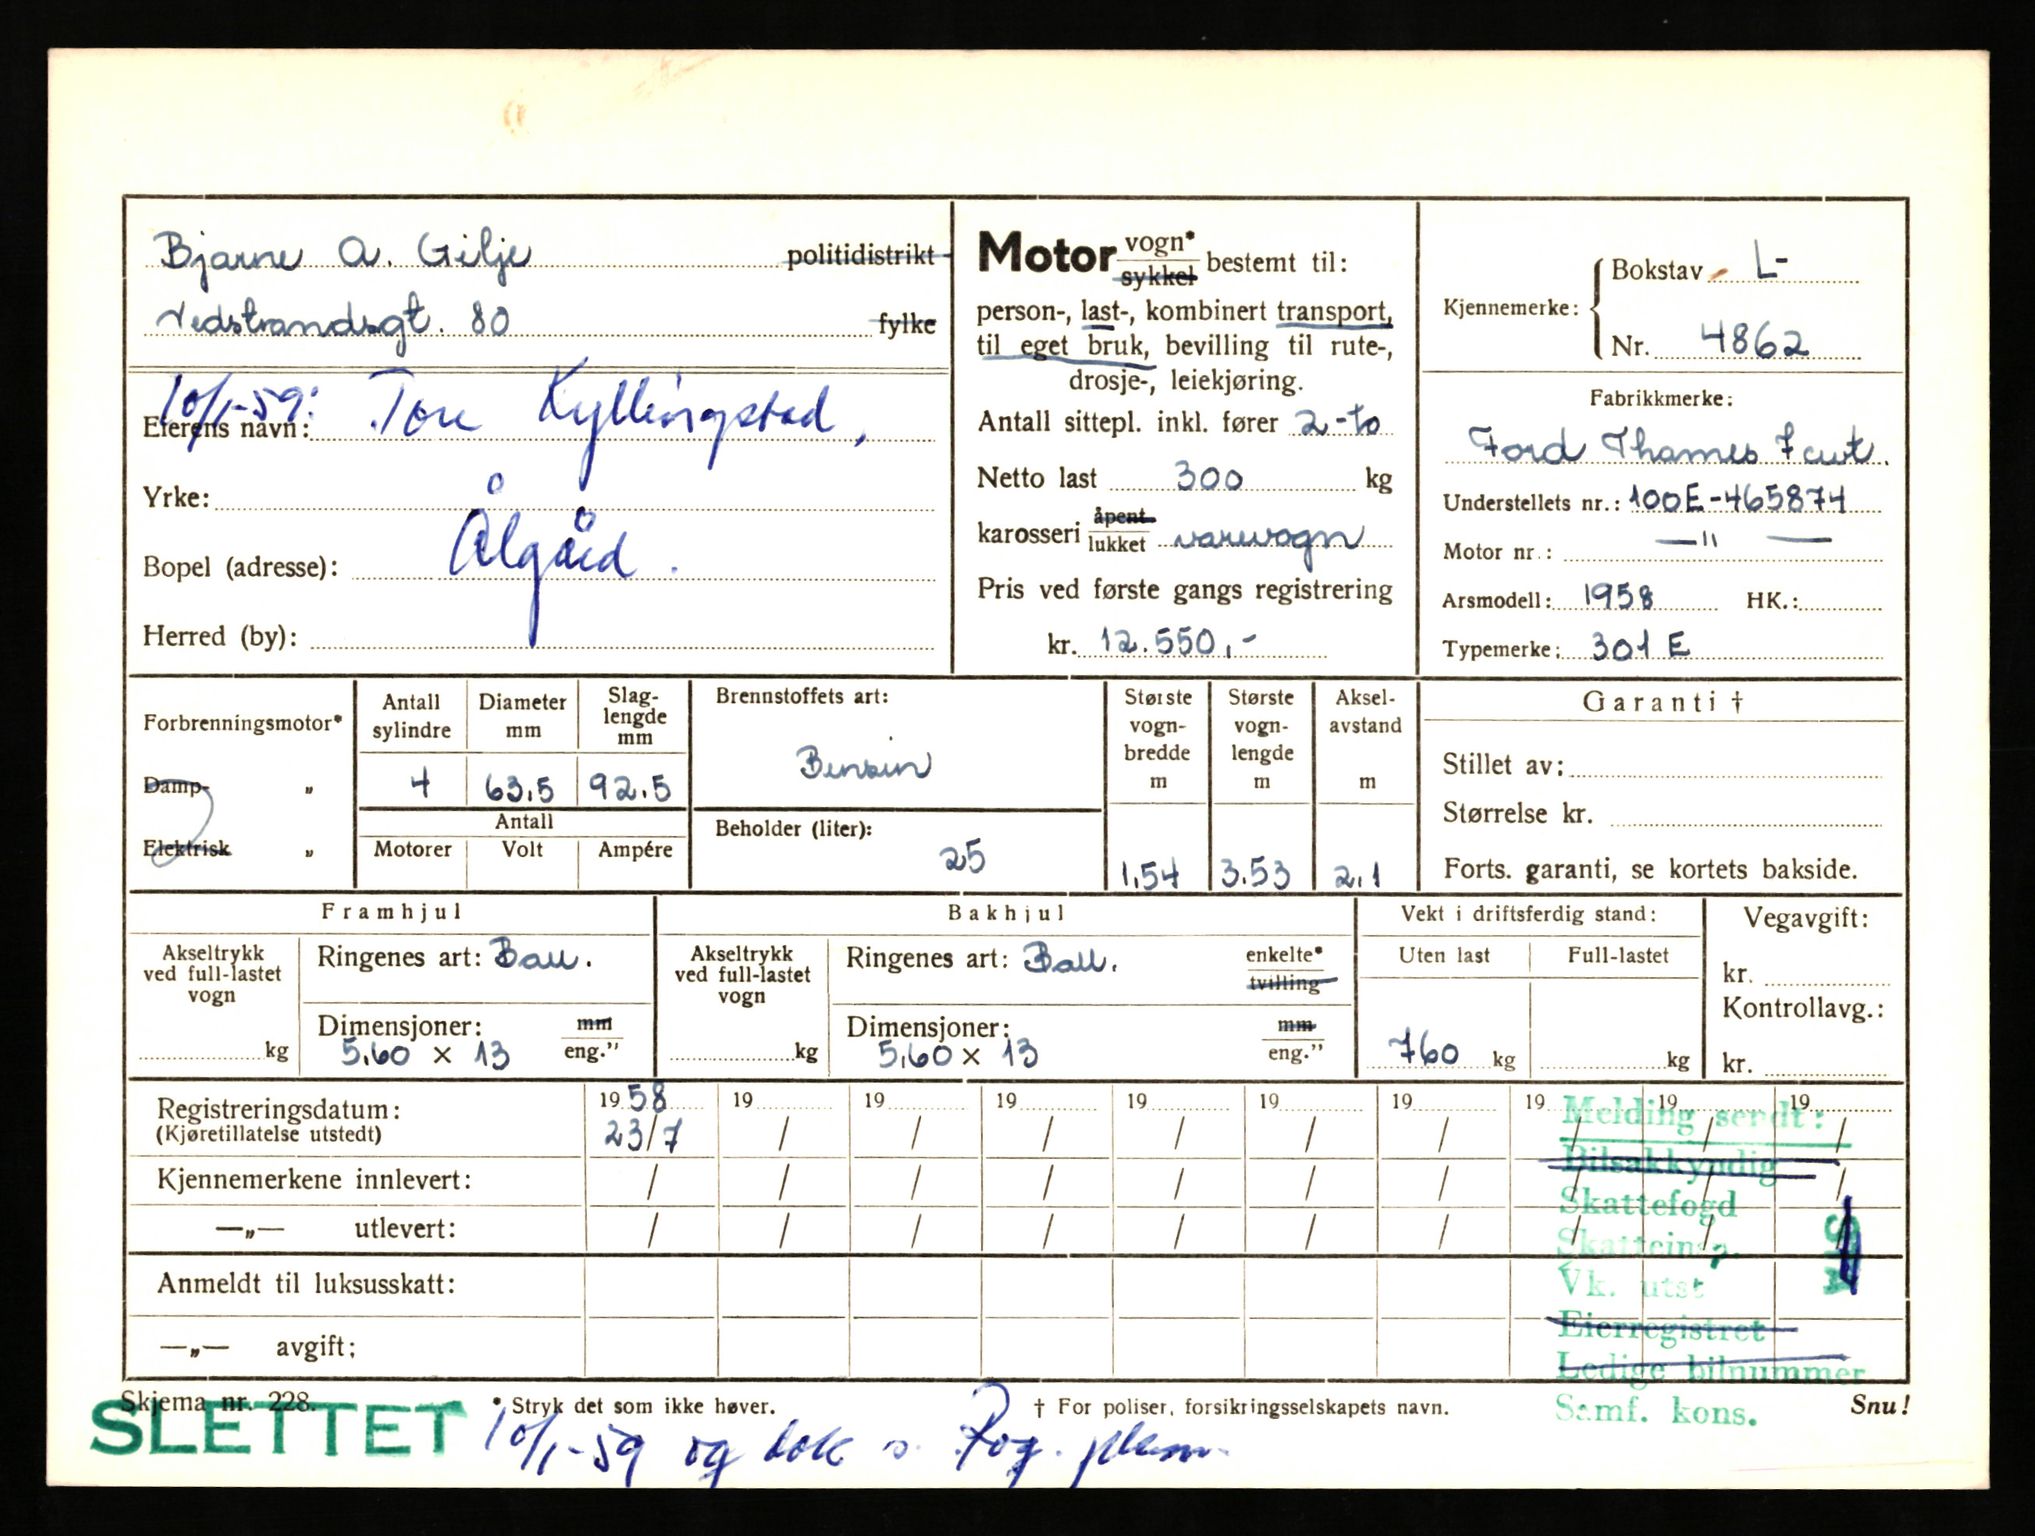 Bjarne A. Gilje politidistrikt
Vedstrandsgt. 80 fylke
10/1-59: Tore Kyllingstad,
Eierens navn:
Yrke:
Ålgård.
Bopel (adresse):
Herred (by):
Motor vogn* sykkel bestemt til:
person-, last-, kombinert transport,
til eget bruk, bevilling til rute-,
drosje-, leiekjøring.
Antall sittepl. inkl. fører 2-to
Netto last 300 kg
karosseri åpent lukket varevogn
Pris ved første gangs registrering
kr. 12.550,-
Kjennemerke: Bokstav L-
Nr. 4862
Fabrikkmerke:
Ford Thames 7 cwt.
Understellets nr.: 100E-465874
Motor nr.: —"—
Årsmodell: 1958 HK.:
Typemerke: 301 E
Forbrenningsmotor*
Damp- „
Elektrisk „
Antall sylindre Diameter mm Slag-lengde mm
4 63,5 92,5
Antall
Motorer Volt Ampére
Brennstoffets art:
Bensin
Beholder (liter):
25
Største vogn-bredde m
1,54
Største vogn-lengde m
3.53
Aksel-avstand m
2,1
Garanti †
Stillet av:
Størrelse kr.
Forts. garanti, se kortets bakside.
Framhjul
Akseltrykk ved full-lastet vogn
kg
Ringenes art: Ball.
Dimensjoner: mm eng."
5,60 x 13
Bakhjul
Akseltrykk ved full-lastet vogn
kg
Ringenes art: Ball. enkelte* tvilling
Dimensjoner: mm eng."
5,60 x 13
Vekt i driftsferdig stand:
Uten last Full-lastet
760 kg kg
Vegavgift:
kr.
Kontrollavg.:
kr.
Registreringsdatum: 1958 19 19 19 19 19 19 19 19 19
(Kjøretillatelse utstedt) 23/7 / / / / / / / / /
Kjennemerkene innlevert: / / / / / / / / / /
—„— utlevert: / / / / / / / / / /
Anmeldt til luksusskatt:
—„— avgift:
Melding sendt:
Bilsakkyndig
Skattefogd
Skatteinsp.
Vk. utst
Eierregistret
Ledige bilnummer
Samf. kons.
Skjema nr. 228. * Stryk det som ikke høver. † For poliser, forsikringsselskapets navn. Snu!
SLETTET 10/1-59 og bok s. Rog.